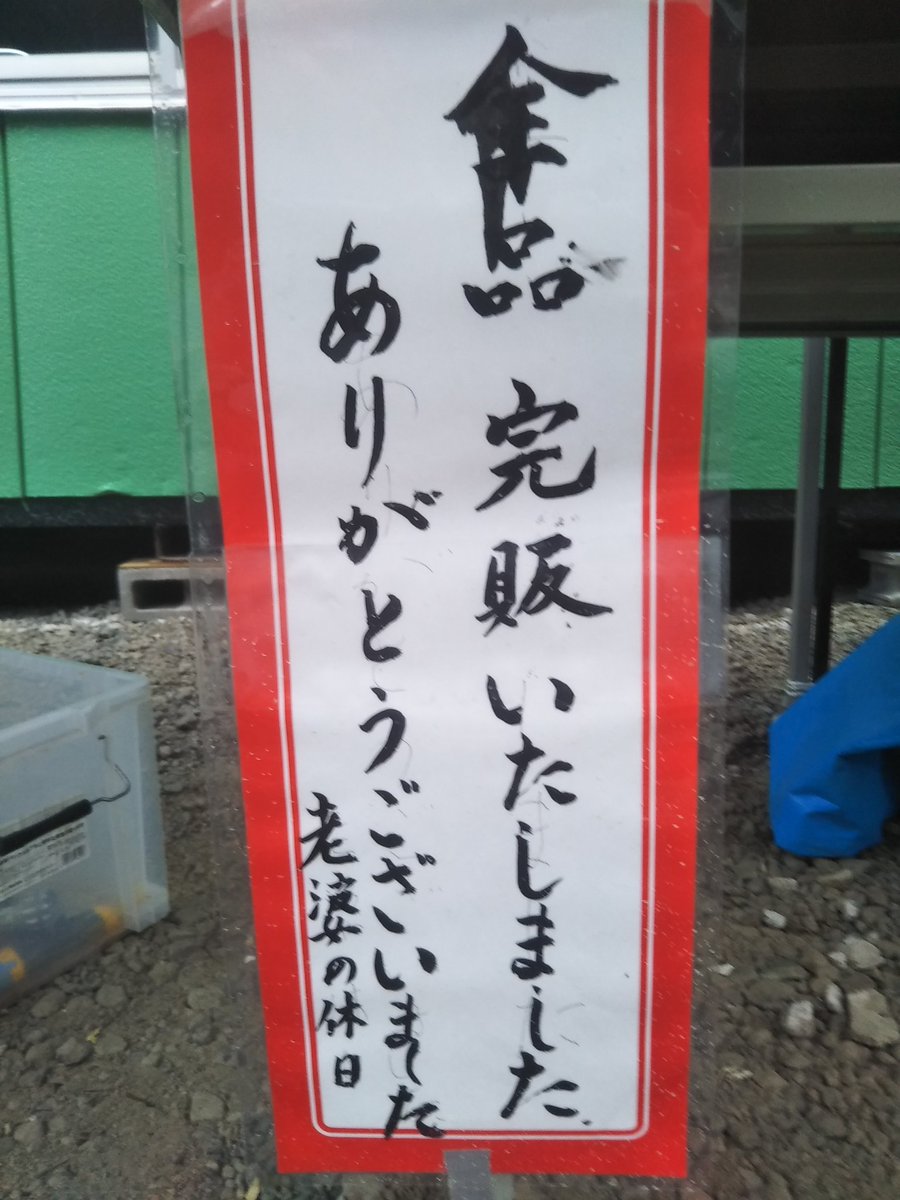 全品完販いたしました
ありがとうございました
老婆の休日